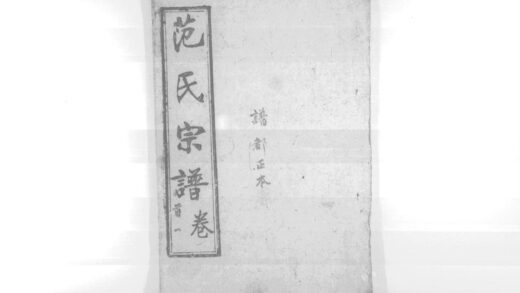 范氏宗譜卷首一
譜都正本